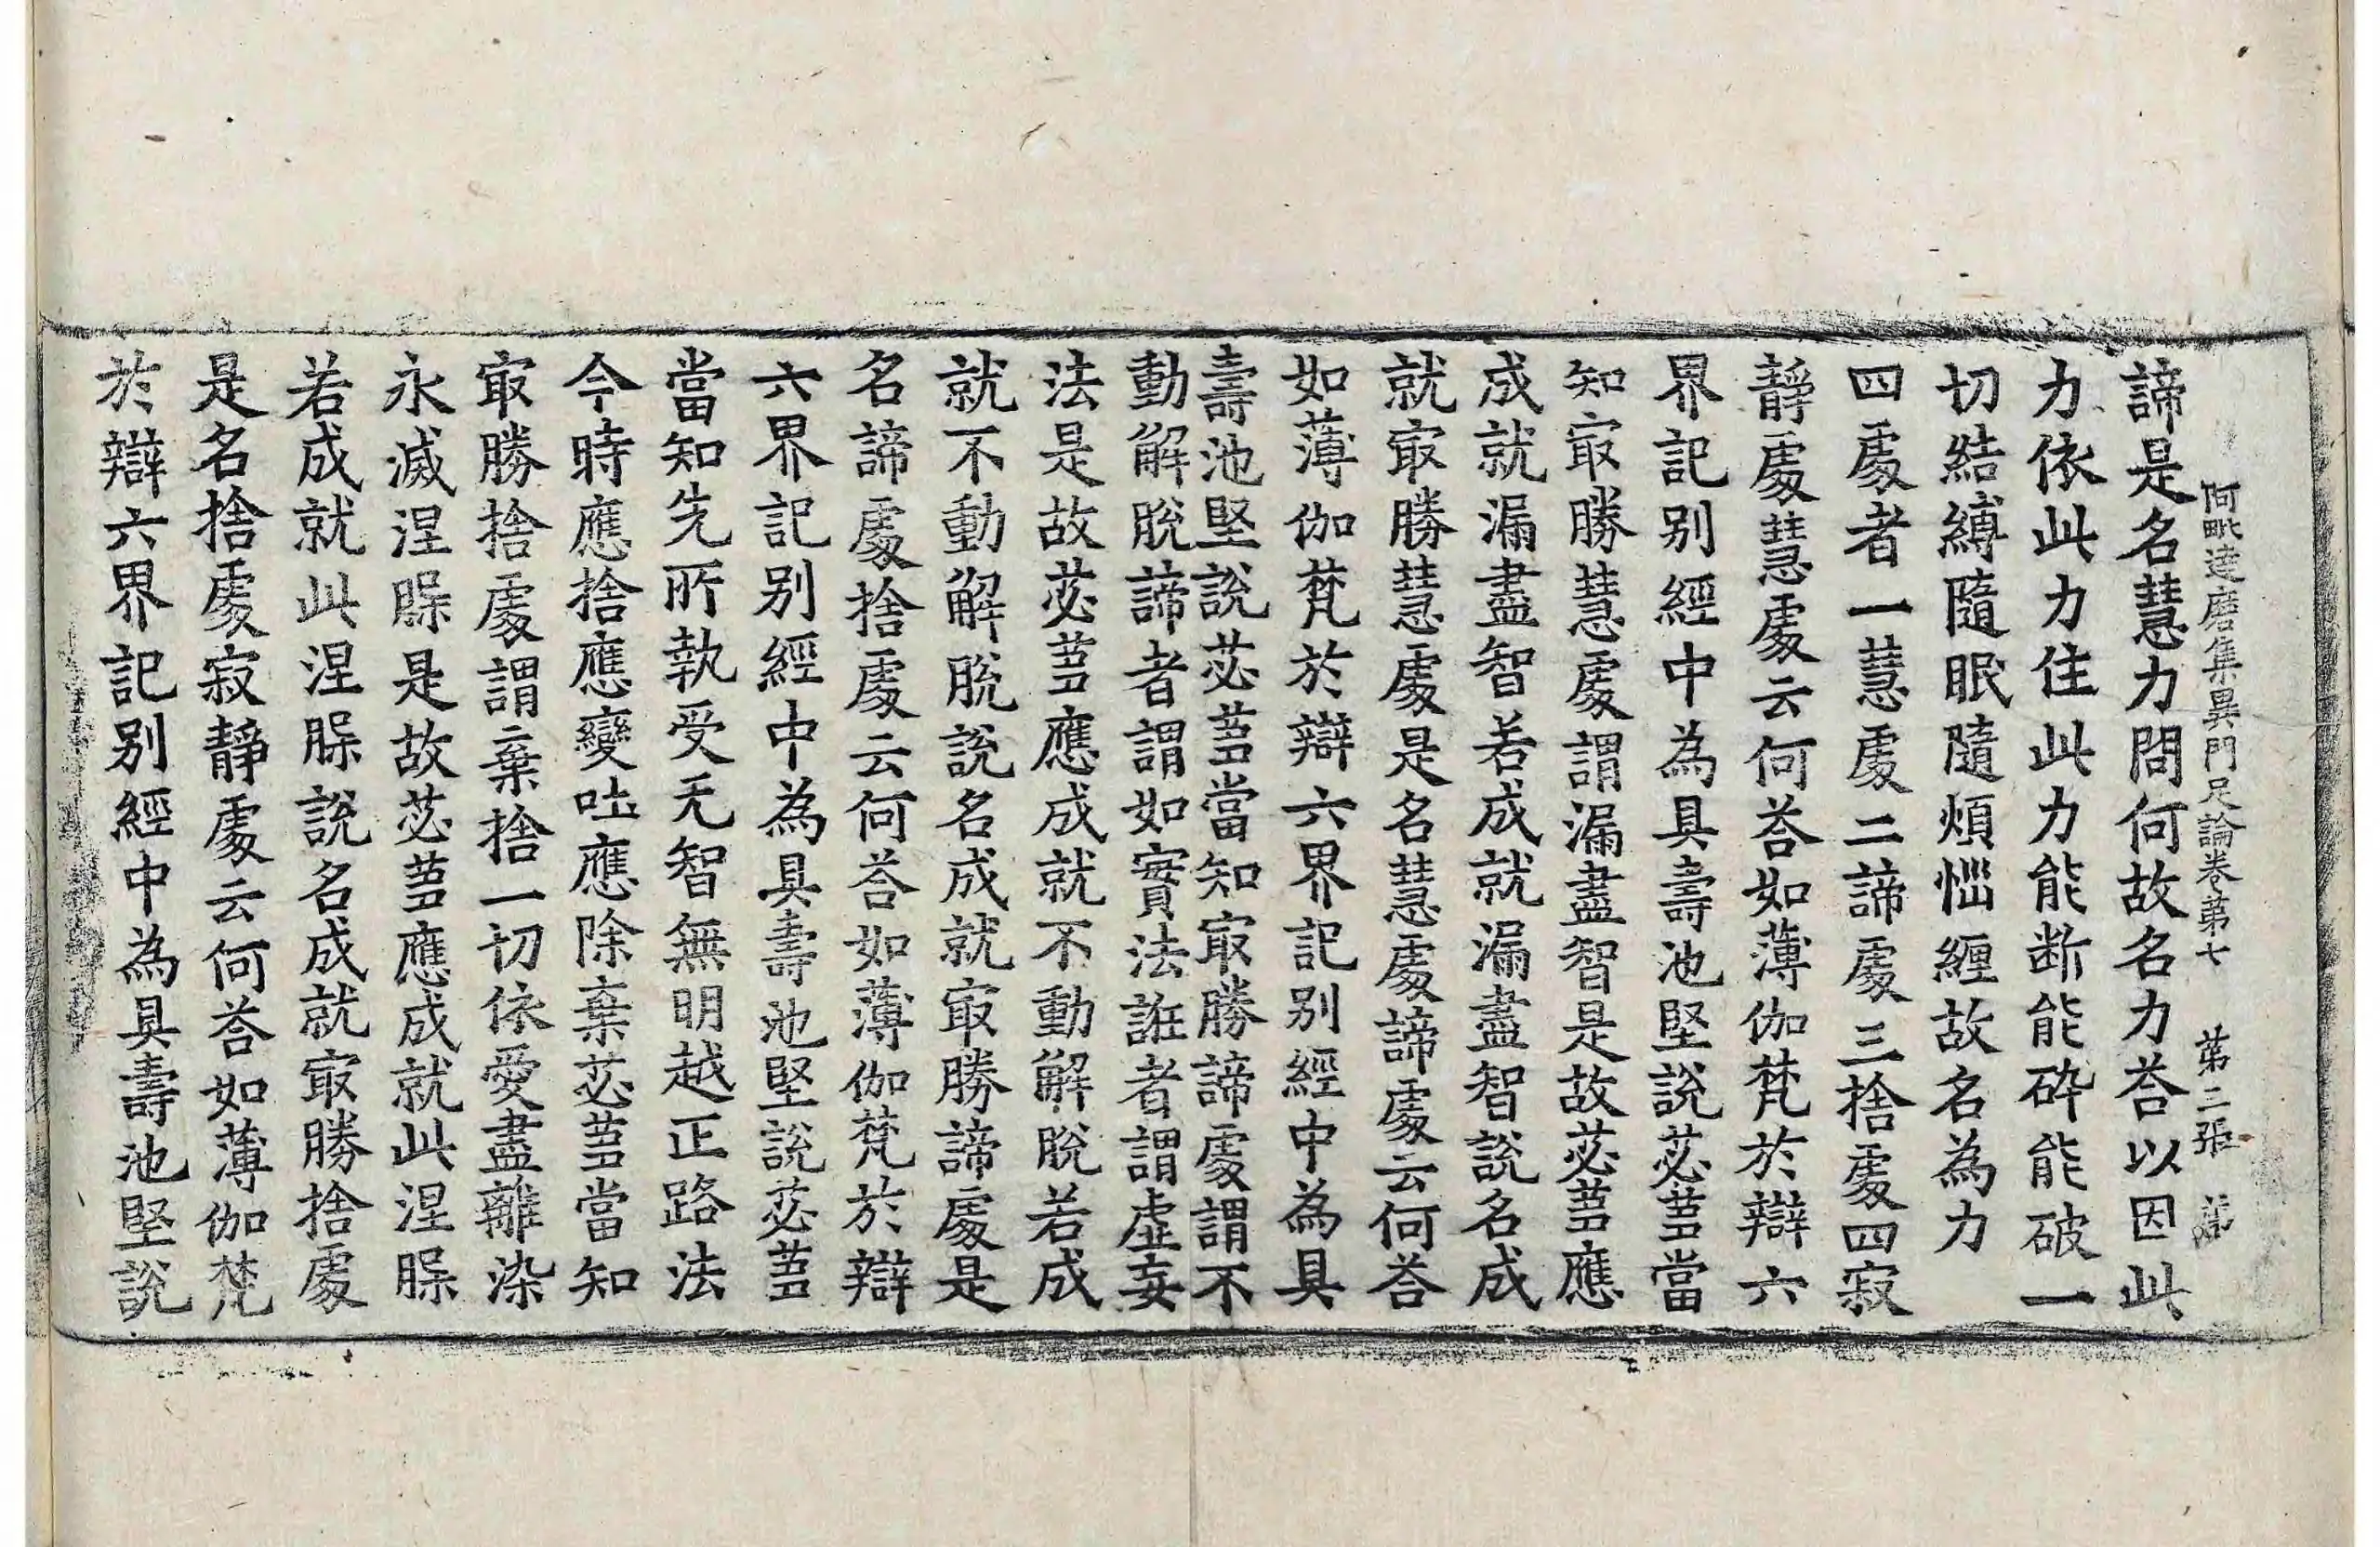 阿毗達磨集異門足論卷第七　第二張　第
諦是名慧力問何故名力荅以因此
力依此力住此力能断能碎能破一
切結縛隨眠隨煩惱纏故名為力
四處者一慧處二諦處三捨處四寂
靜處慧處云何荅如薄伽梵於辯六
界記别經中為具壽池堅說苾蒭當
知㝡勝慧處謂漏盡智是故苾蒭應
成就漏盡智若成就漏盡智說名成
就㝡勝慧處是名慧處諦處云何荅
如薄伽梵於辯六界記别經中為具
壽池堅說苾蒭當知㝡勝諦處謂不
動解脫諦者謂如實法誑者謂虛妄
法是故苾蒭應成就不動解脫若成
就不動解脫說名成就㝡勝諦處是
名諦處捨處云何荅如薄伽梵於辯
六界記别經中為具壽池堅說苾蒭
當知先所執受无智無明越正路法
今時應捨應變吐應除棄苾蒭當知
㝡勝捨處謂棄捨一切依愛盡離染
永滅涅槃是故苾蒭應成就此涅槃
若成就此涅槃說名成就㝡勝捨處
是名捨處寂靜處云何荅如薄伽梵
於辯六界記别經中為具壽池堅說